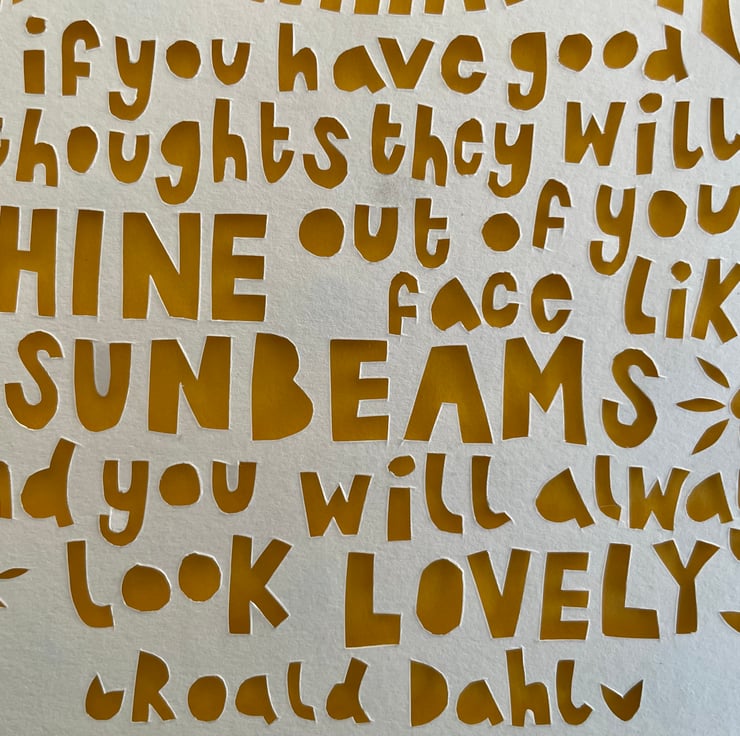 if you have good
thoughts they will
HINE out of you
face LiK
SUNBEAMS
nd you will alway
look LOVELY
Roald Dahl